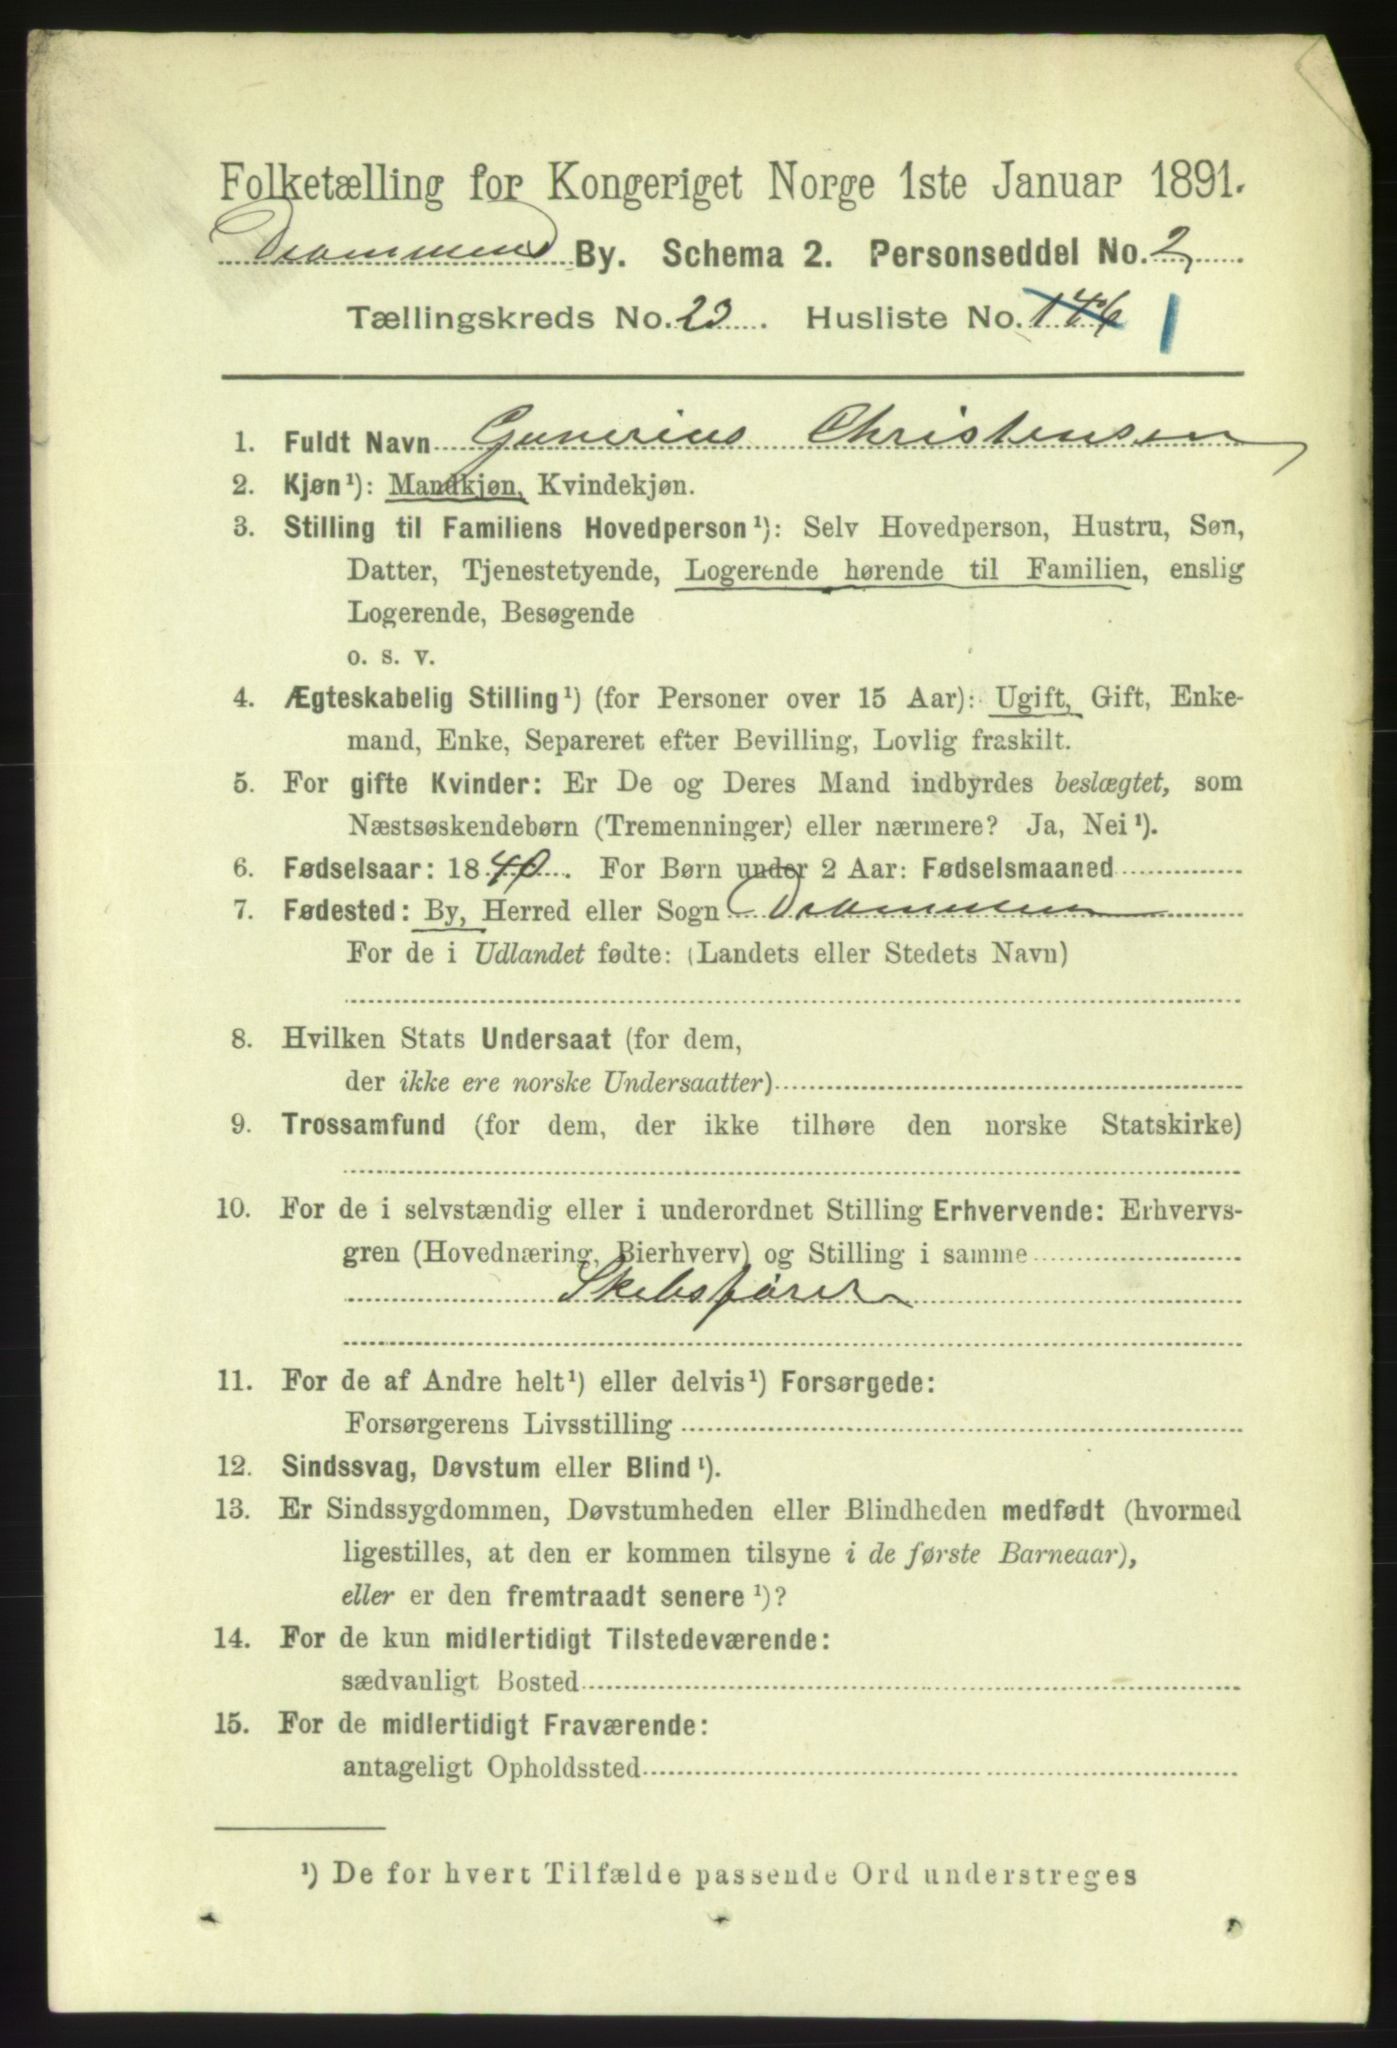 Folketælling for Kongeriget Norge 1ste Januar 1891.
Drammen By. Schema 2. Personseddel No. 2
Tællingskreds No. 23. Husliste No. 146 1
1. Fuldt Navn Gunerius Christensen
2. Kjøn¹): Mandkjøn, Kvindekjøn.
3. Stilling til Familiens Hovedperson¹): Selv Hovedperson, Hustru, Søn,
Datter, Tjenestetyende, Logerende hørende til Familien, enslig
Logerende, Besøgende
o. s. v.
4. Ægteskabelig Stilling¹) (for Personer over 15 Aar): Ugift, Gift, Enke-
mand, Enke, Separeret efter Bevilling, Lovlig fraskilt.
5. For gifte Kvinder: Er De og Deres Mand indbyrdes beslægtet, som
Næstsøskendebørn (Tremenninger) eller nærmere? Ja, Nei¹).
6. Fødselsaar: 1840. For Børn under 2 Aar: Fødselsmaaned
7. Fødested: By, Herred eller Sogn Drammen
For de i Udlandet fødte: (Landets eller Stedets Navn)
8. Hvilken Stats Undersaat (for dem,
der ikke ere norske Undersaatter)
9. Trossamfund (for dem, der ikke tilhøre den norske Statskirke)
10. For de i selvstændig eller i underordnet Stilling Erhvervende: Erhvervs-
gren (Hovednæring, Bierhverv) og Stilling i samme
Skibsfører
11. For de af Andre helt¹) eller delvis¹) Forsørgede:
Forsørgerens Livsstilling
12. Sindssvag, Døvstum eller Blind¹).
13. Er Sindssygdommen, Døvstumheden eller Blindheden medfødt (hvormed
ligestilles, at den er kommen tilsyne i de første Barneaar),
eller er den fremtraadt senere¹)?
14. For de kun midlertidigt Tilstedeværende:
sædvanligt Bosted
15. For de midlertidigt Fraværende:
antageligt Opholdssted
¹) De for hvert Tilfælde passende Ord understreges